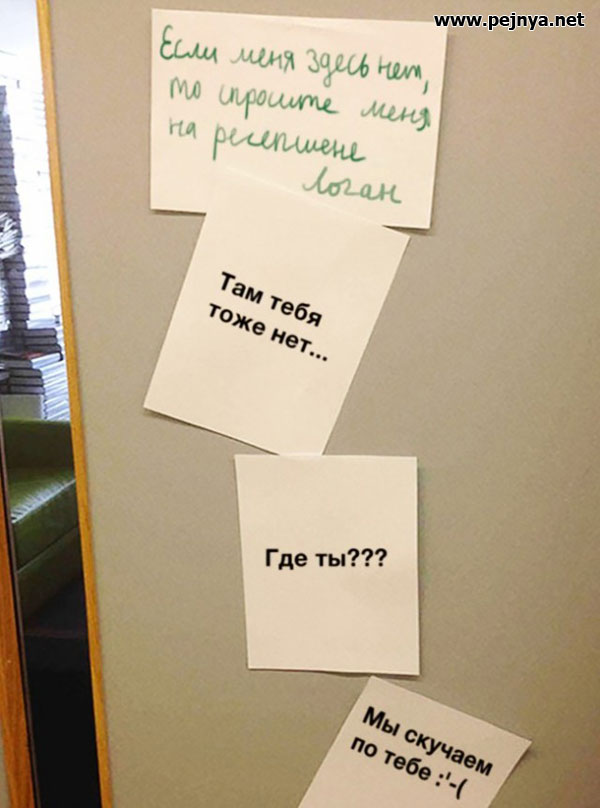 www.pejnya.net
Если меня здесь нет,
то спросите меня
на ресепшене
Логан
Там тебя
тоже нет...
Где ты???
Мы скучаем
по тебе :'-(